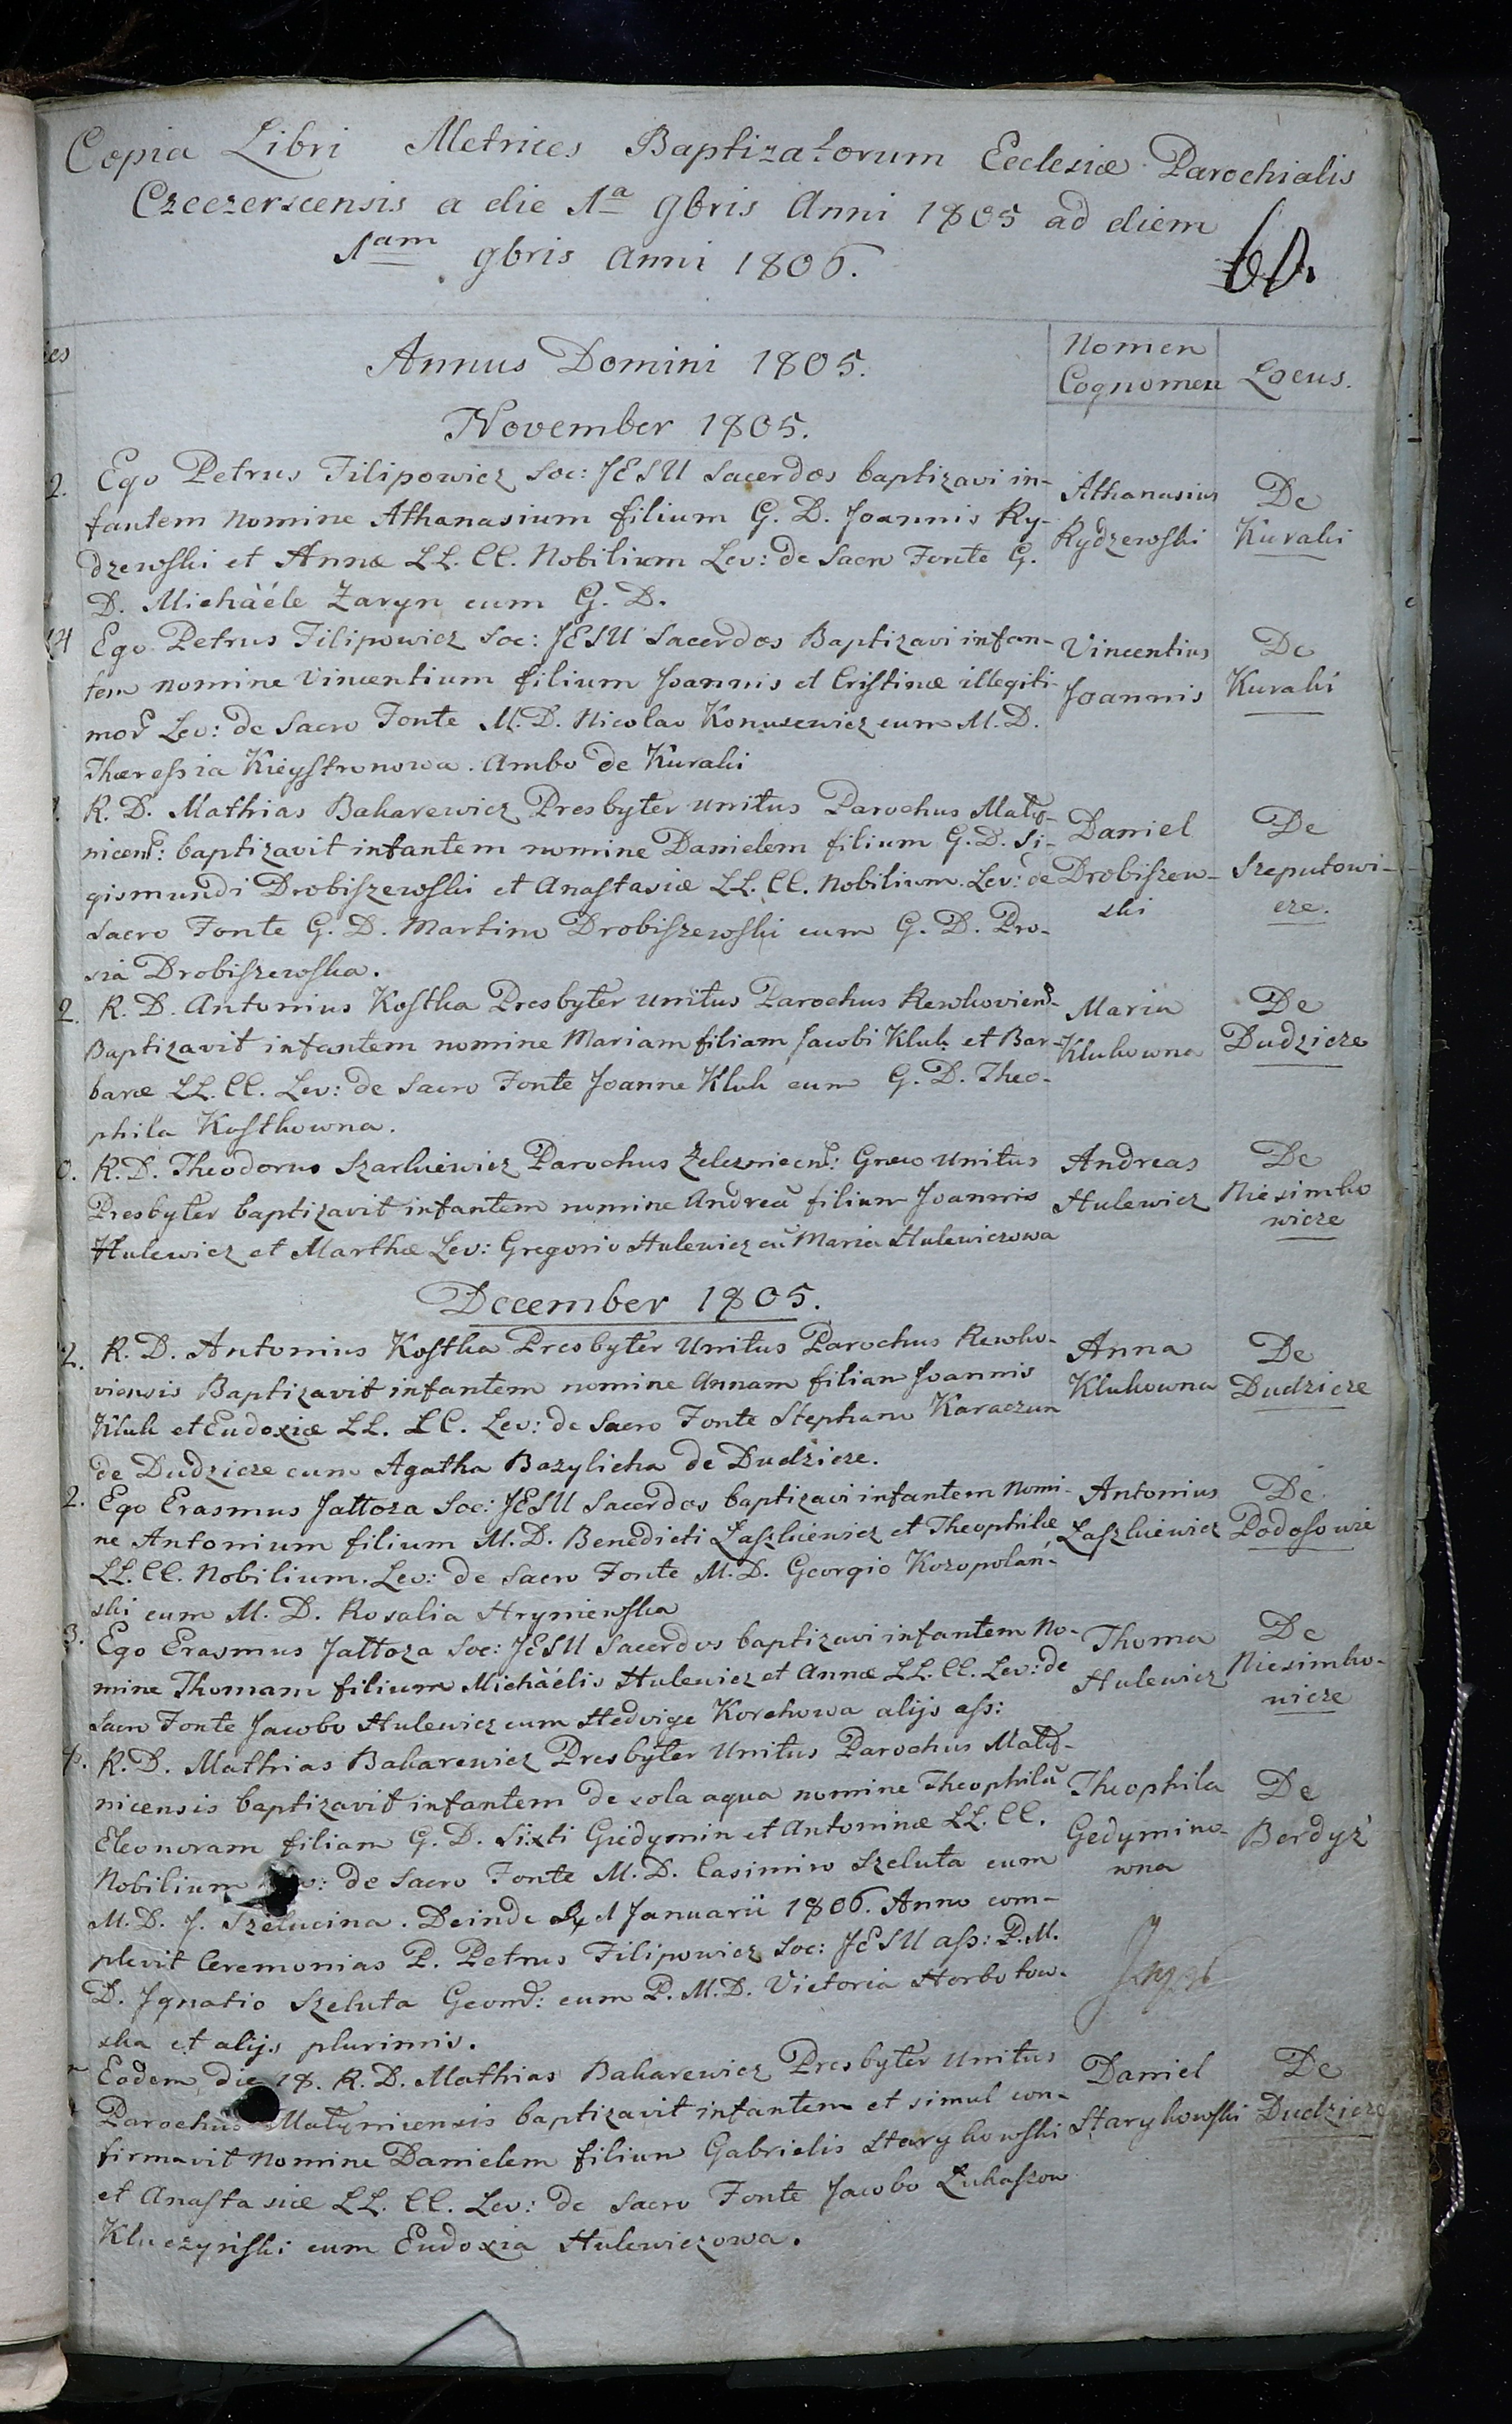 Copia Libri Metrices Baptizatorum Ecclesiæ Parochialis
Czeczerscensis a die 1a 9bris Anni 1805 ad diem
1am 9bris Anni 1806.
60.
Annus Domini 1805.
Nomen
Cognomen
Locus.
November 1805.
2. Ego Petrus Filipowicz Soc: JESU Sacerdos baptizavi in-
fantem Nomine Athanasium filium G. D. Joannis Ry-
dzewski et Annæ LL. CC. Nobilium Lev: de Sacro Fonte G.
D. Michàéle Zaryn cum G. D.
Athanasius
Rydzewski
De
Kuraki
Ego Petrus Filipowicz Soc: JESU Sacerdos Baptizavi infan-
tem nomine Vincentium filium Joannis et Cristinæ illegiti-
mor Lev: de Sacro Fonte M. D. Nicolao Konusewicz cum M. D.
Thæressia Kieystronowa. Ambo de Kuraki
Vincentius
Joannis
De
Kuraki
R. D. Mathias Bakarewicz Presbyter Unitus Parochus Maty-
nicens: baptizavit infantem nomine Danielem filium G. D. Si-
gismundi Drobiszewski et Anastasiæ LL. CC. Nobilium. Lev: de
Sacro Fonte G. D. Martino Drobiszewski cum G. D. Pro-
sia Drobiszewska.
Daniel
Drobiszew-
ski
De
Szeputowi-
cze.
2. R. D. Antonius Kostka Presbyter Unitus Parochus Rewkoviens
Baptizavit infantem nomine Mariam filiam Jacobi Kluk et Bar-
baræ LL. CC. Lev: de Sacro Fonte Joanne Kluk cum G. D. Theo-
phila Kostkowna.
Maria
Klukowna
De
Dudzicze
0. R. D. Theodorus Szarkiewicz Parochus Zelezniecens: Græco Unitus
Presbyter baptizavit infantem nomine Andreā filium Joannis
Hulewicz et Marthæ Lev: Gregorio Hulewicz cū Maria Hulewiczowa
Andreas
Hulewicz
De
Niesimko
wicze
December 1805.
2. R. D. Antonius Kostka Presbyter Unitus Parochus Rewko-
viensis Baptizavit infantem nomine Annam filiam Joannis
Kluk et Eudoxiæ LL. CC. Lev: de Sacro Fonte Stephano Karaczun
de Dudzicze cum Agatha Bazylicha de Dudzicze.
Anna
Klukowna
De
Dudzicze
2. Ego Erasmus Jattoza Soc: JESU Sacerdos baptizavi infantem Nomi-
ne Antonium filium M. D. Benedicti Laszkiewicz et Theophilæ
LL. CC. Nobilium. Lev: de Sacro Fonte M. D. Georgio Kozopolań-
ski cum M. D. Rosalia Hryniewska
Antonius
Łaszkiewicz
De
Podosowie
3. Ego Erasmus Jattoza Soc: JESU Sacerdos baptizavi infantem No-
mine Thomam filium Michàélis Hulewicz et Annæ LL. CC. Lev: de
Sacro Fonte Jacobo Hulewicz cum Hedvige Korchowa alijs ass:
Thoma
Hulewicz
De
Niesimko-
wicze
R. D. Mathias Bakarewicz Presbyter Unitus Parochus Maty-
nicensis baptizavit infantem de sola aqua nomine Theophilā
Eleonoram filiam G. D. Sixti Giedymin et Antoninæ LL. CC.
Nobilium Lev: de Sacro Fonte M. D. Casimiro Szeluta cum
M. D. J. Szelucina. Deinde 1 Januarii 1806. Anno com-
plevit Ceremonias P. Petrus Filipowicz Soc: JESU ass: P. M.
D. Ignatio Szeluta Geomt: cum P. M. D. Victoria Horbotow-
ska et alijs plurimis.
Theophila
Gedymino-
wna
De
Berdyż
Eodem die 18. R. D. Mathias Bakarewicz Presbyter Unitus
Parochus Matynicensis baptizavit infantem et simul con-
firmavit Nomine Danielem filium Gabrielis Starykowski
et Anastasiæ LL. CC. Lev: de Sacro Fonte Jacobo Lukaszow
Kluczyński cum Eudoxia Hulewiczowa.
Daniel
Starykowski
De
Dudzicze